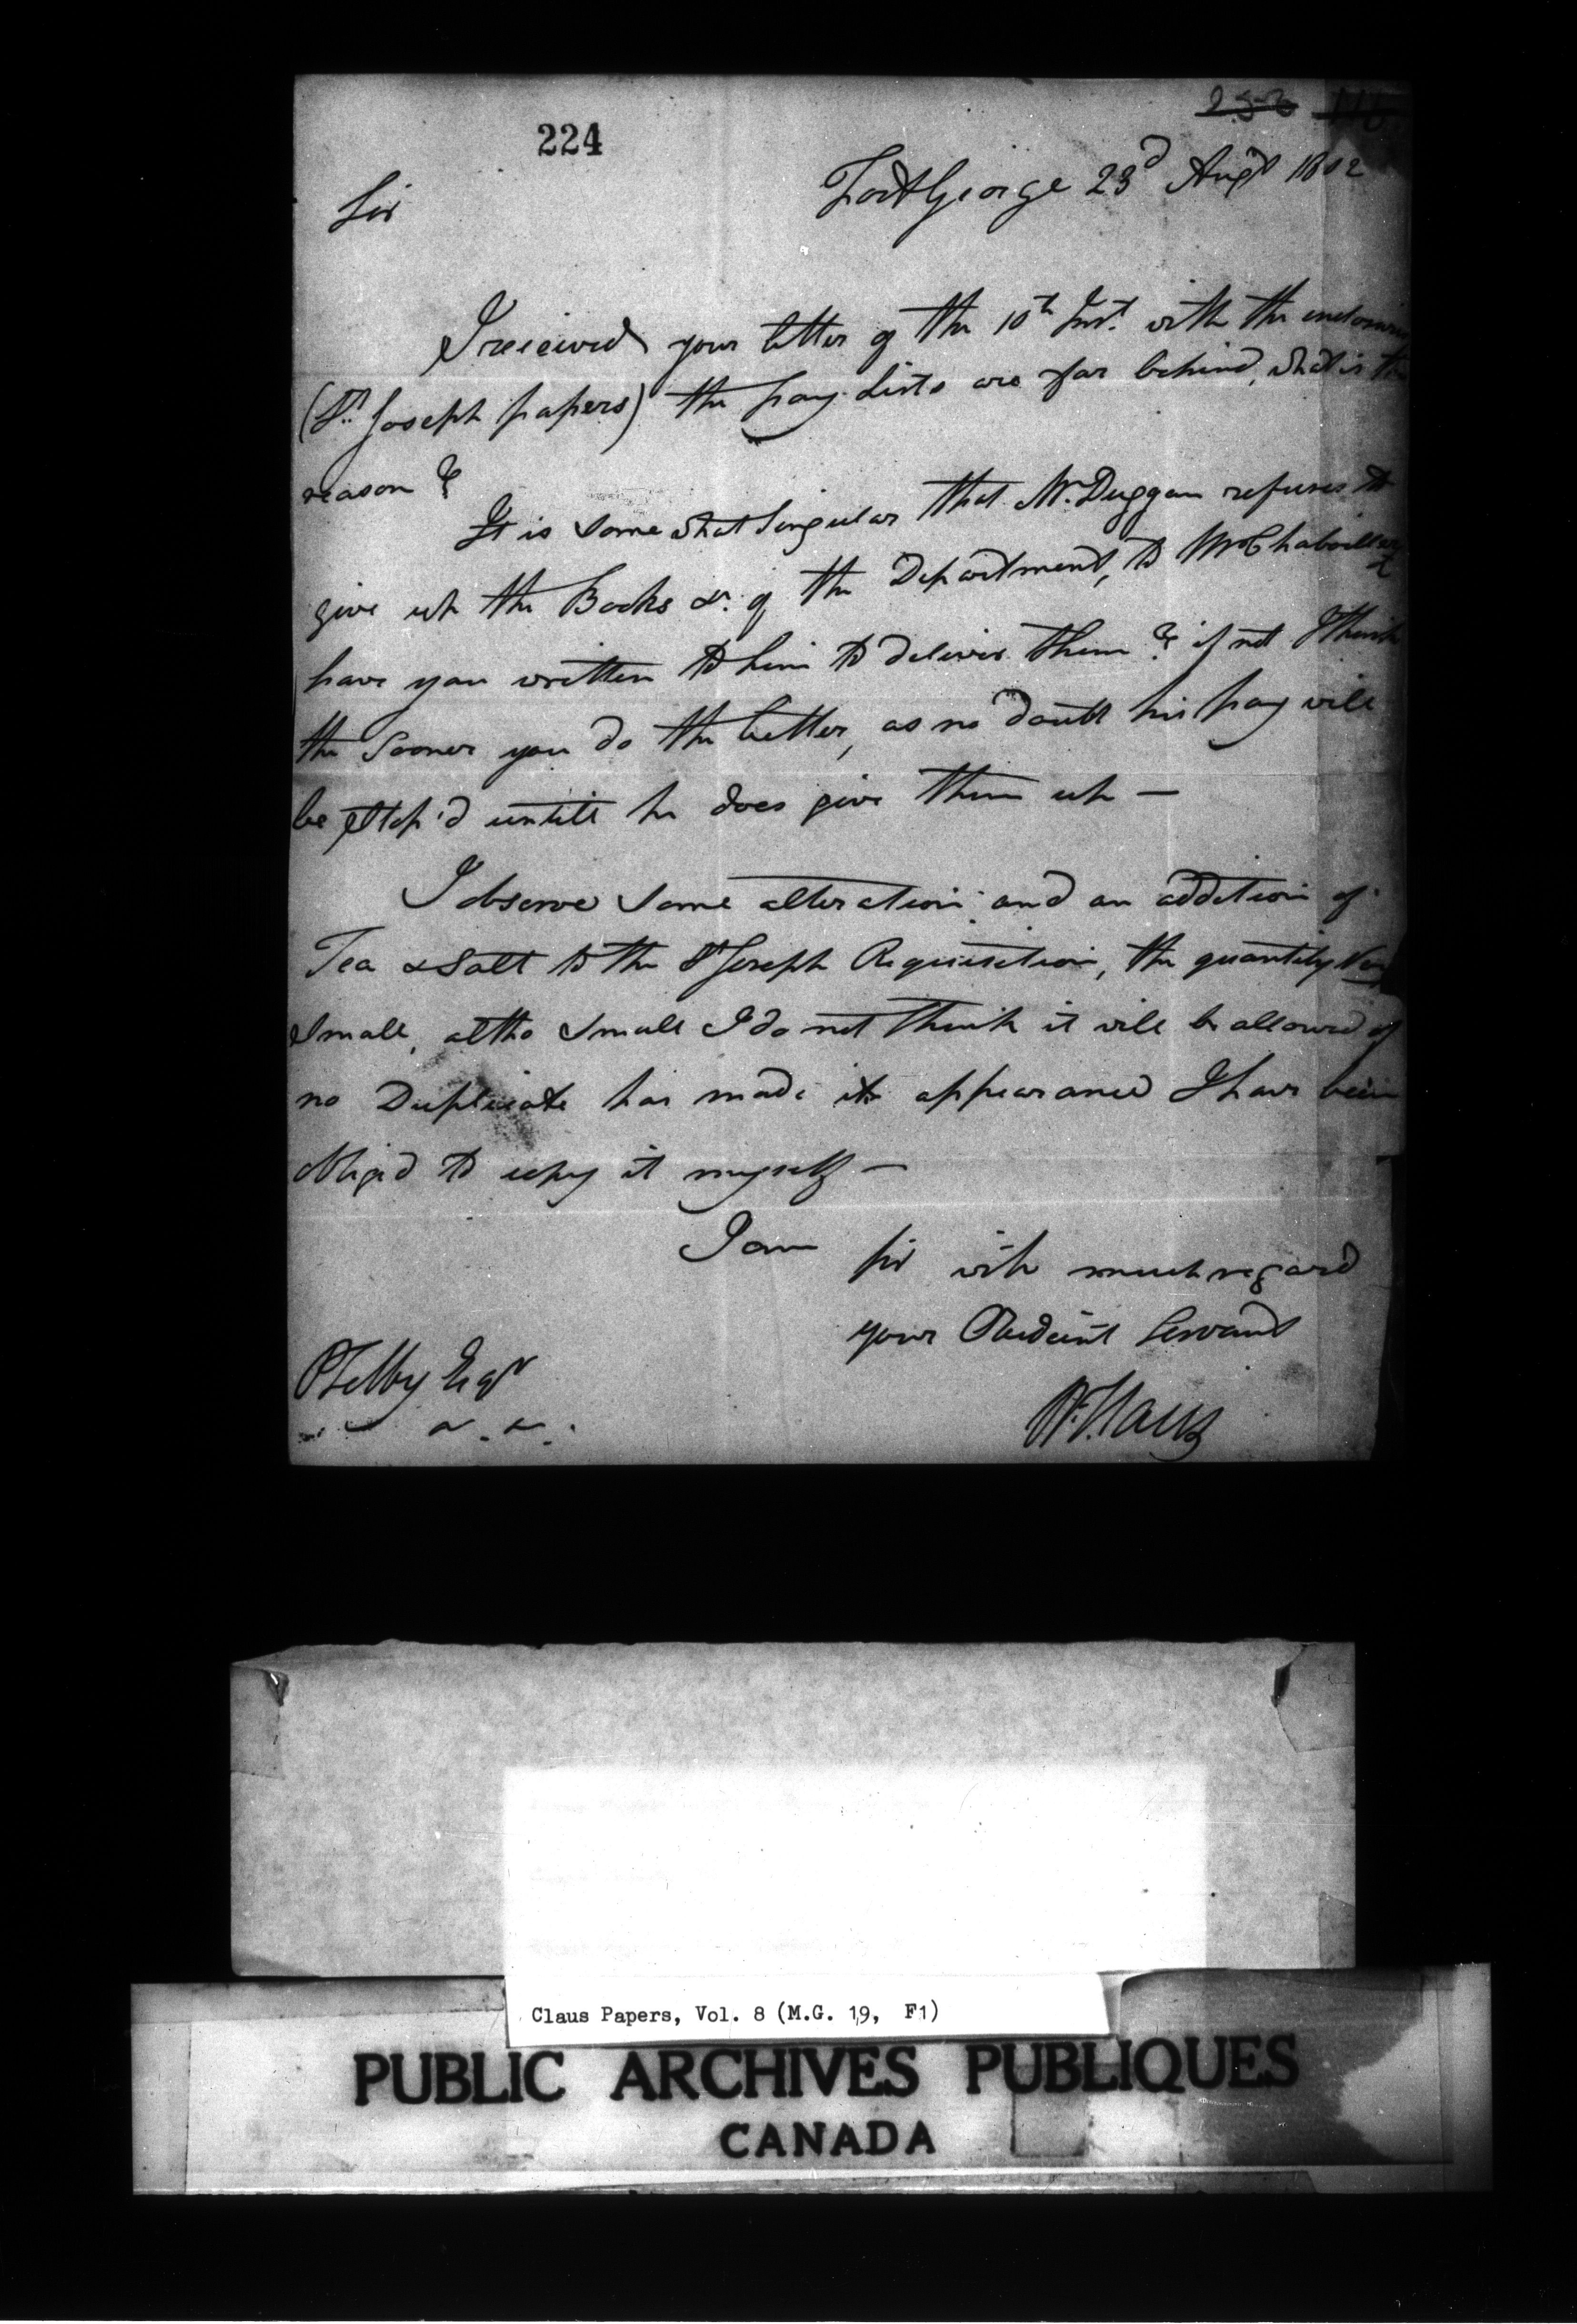 224
Sir
Fort George 23d Augt 1802
I received your letter of the 10th Inst. with the enclosures
(St. Joseph papers) the pay Lists are far behind, what is the
reason?
It is some what Singular that Mr. Duggan refuses to
give up the Books &c. of the Department, to Mr Chaboillez
have you written to him to deliver them? if not I think
the Sooner you do the better, as no doubt his pay will
be Stop'd untill he does give them up —
I observe Some alteration and an addition of
Tea & Salt to the St Joseph Requisition, the quantity Very
Small, altho Small I do not think it will be allowed of
no Duplicate has made its appearance I have been
Oblig'd to copy it myself —
I am Sir with much regard
your Obedient Servant
P Selby Esqr
W. Claus
Claus Papers, Vol. 8 (M.G. 19, F1)
PUBLIC ARCHIVES PUBLIQUES
CANADA